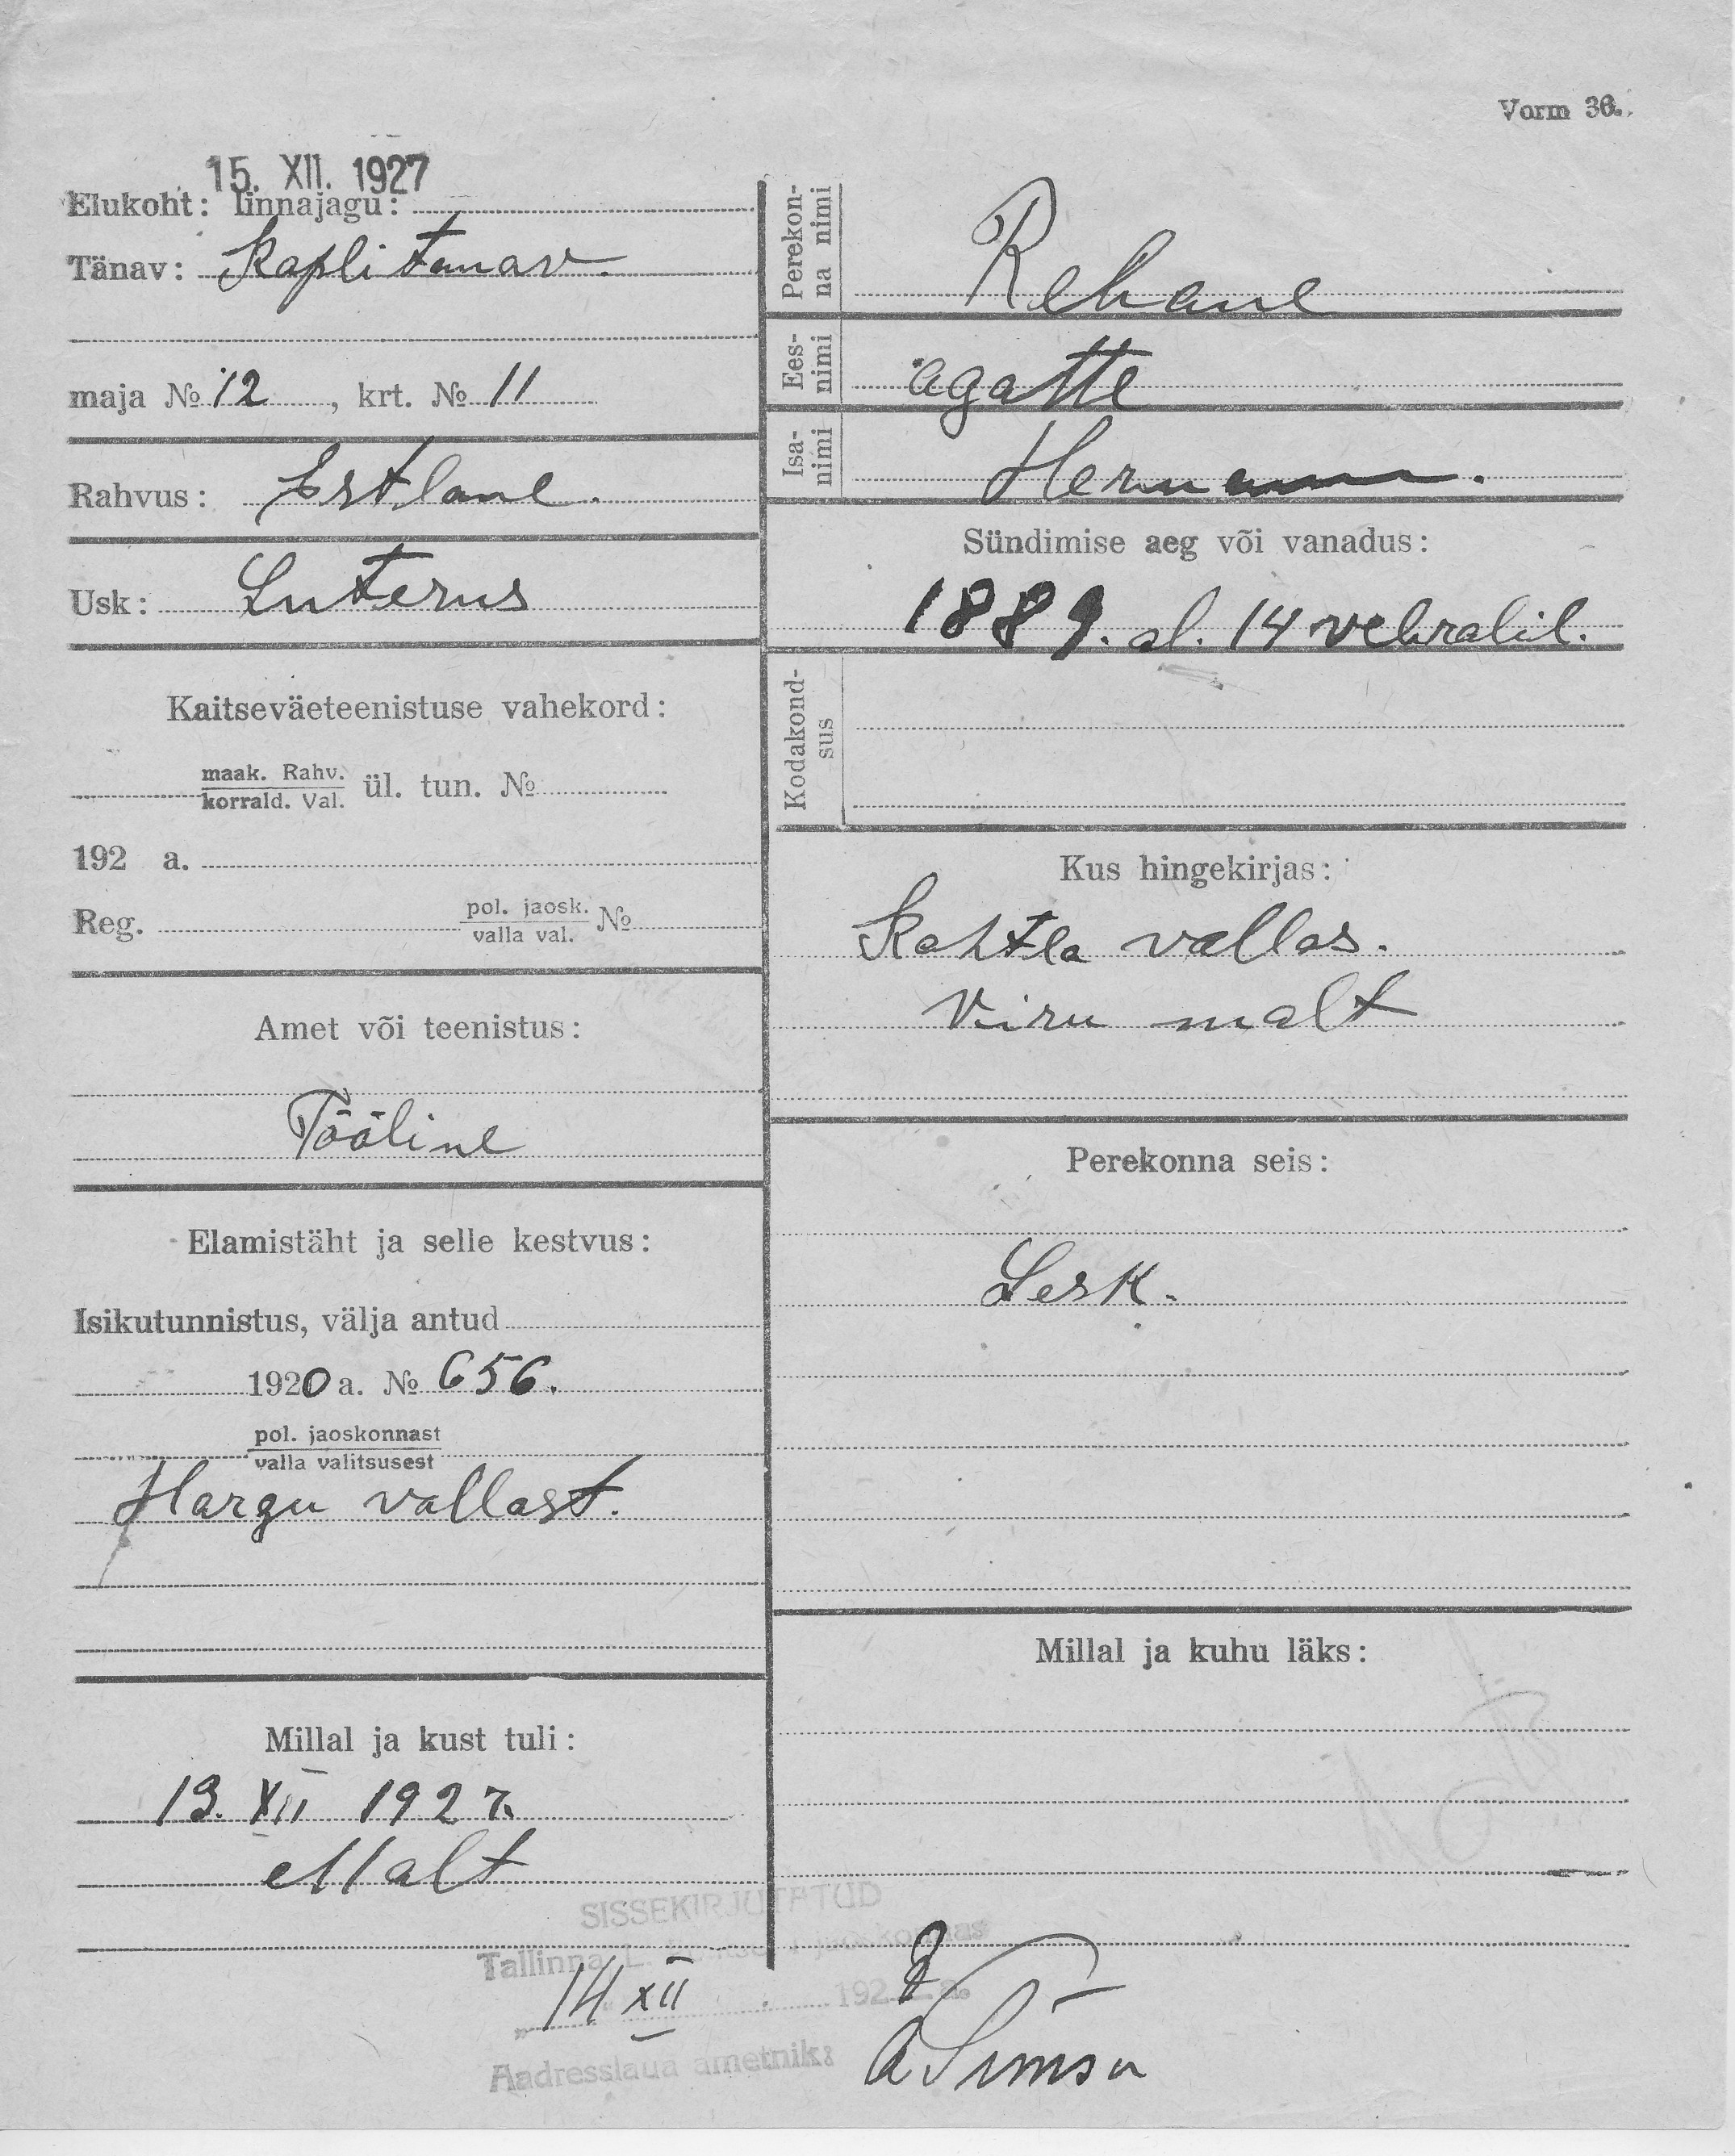 Vorm 36.
15. XII. 1927
Elukoht: linnajagu:
Tänav: Kaplitanav.
maja № 12, krt. № 11
Rahvus: Estlane.
Usk: Luterus
Kaitseväeteenistuse vahekord:
maak. Rahv.
korrald. Val. ül. tun. №
192 a.
Reg. pol. jaosk. №
valla val.
Amet või teenistus:
Tööline
Elamistäht ja selle kestvus:
Isikutunnistus, välja antud
1920 a. № 656.
pol. jaoskonnast
valla valitsusest
Hargu vallast.
Millal ja kust tuli:
13. XII 1927.
Malt
Perekon-
na nimi
Rehane
Ees-
nimi
agatte
Isa-
nimi
Hermann.
Sündimise aeg või vanadus:
1889. al. 14 vebralil.
Kodakond-
sus
Kus hingekirjas:
Kohtla vallas.
Viru malt
Perekonna seis:
Lesk.
Millal ja kuhu läks:
SISSEKIRJUTATUD
Tallinna jaoskonnas
14 XII 192 a.
Aadresslaua ametnik: